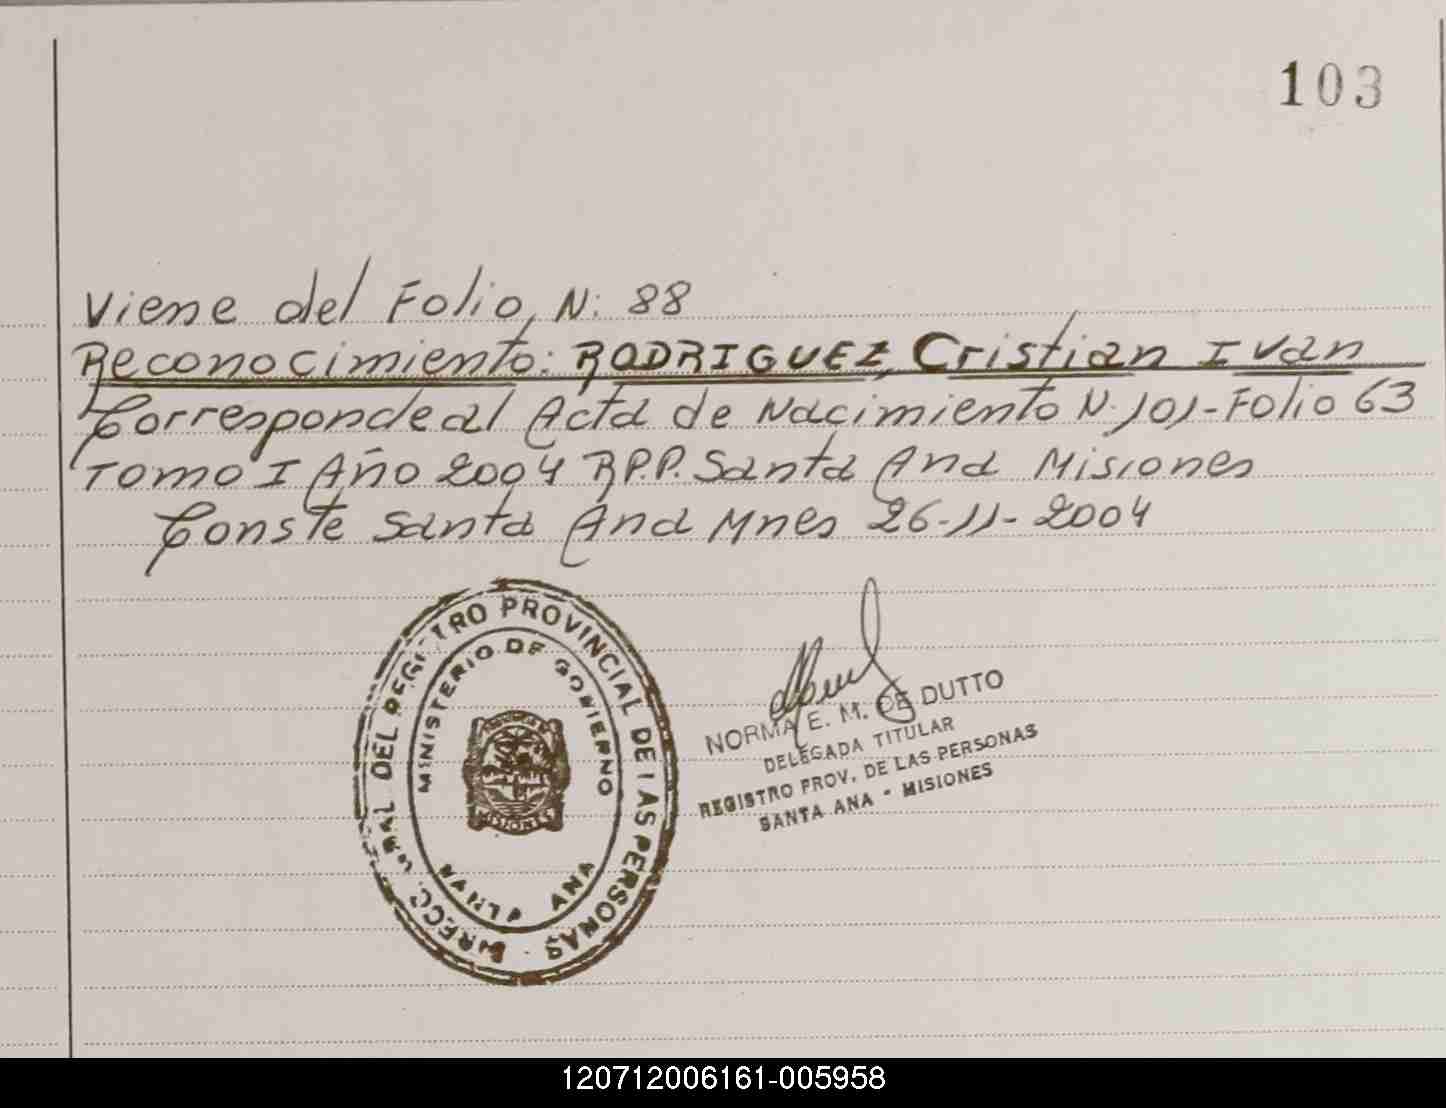 103
Viene del Folio, N: 88
Reconocimiento: RODRIGUEZ, Cristian Ivan
Corresponde al Acta de Nacimiento N. 101-Folio 63
Tomo I Año 2004 R.P.P. Santa Ana Misiones
Conste Santa Ana Mnes 26-11-2004
DEL REGISTRO PROVINCIAL DE LAS PERSONAS
MINISTERIO DE GOBIERNO
MISIONES
SANTA ANA
NORMA E. M. DE DUTTO
DELEGADA TITULAR
REGISTRO PROV. DE LAS PERSONAS
SANTA ANA - MISIONES
120712006161-005958